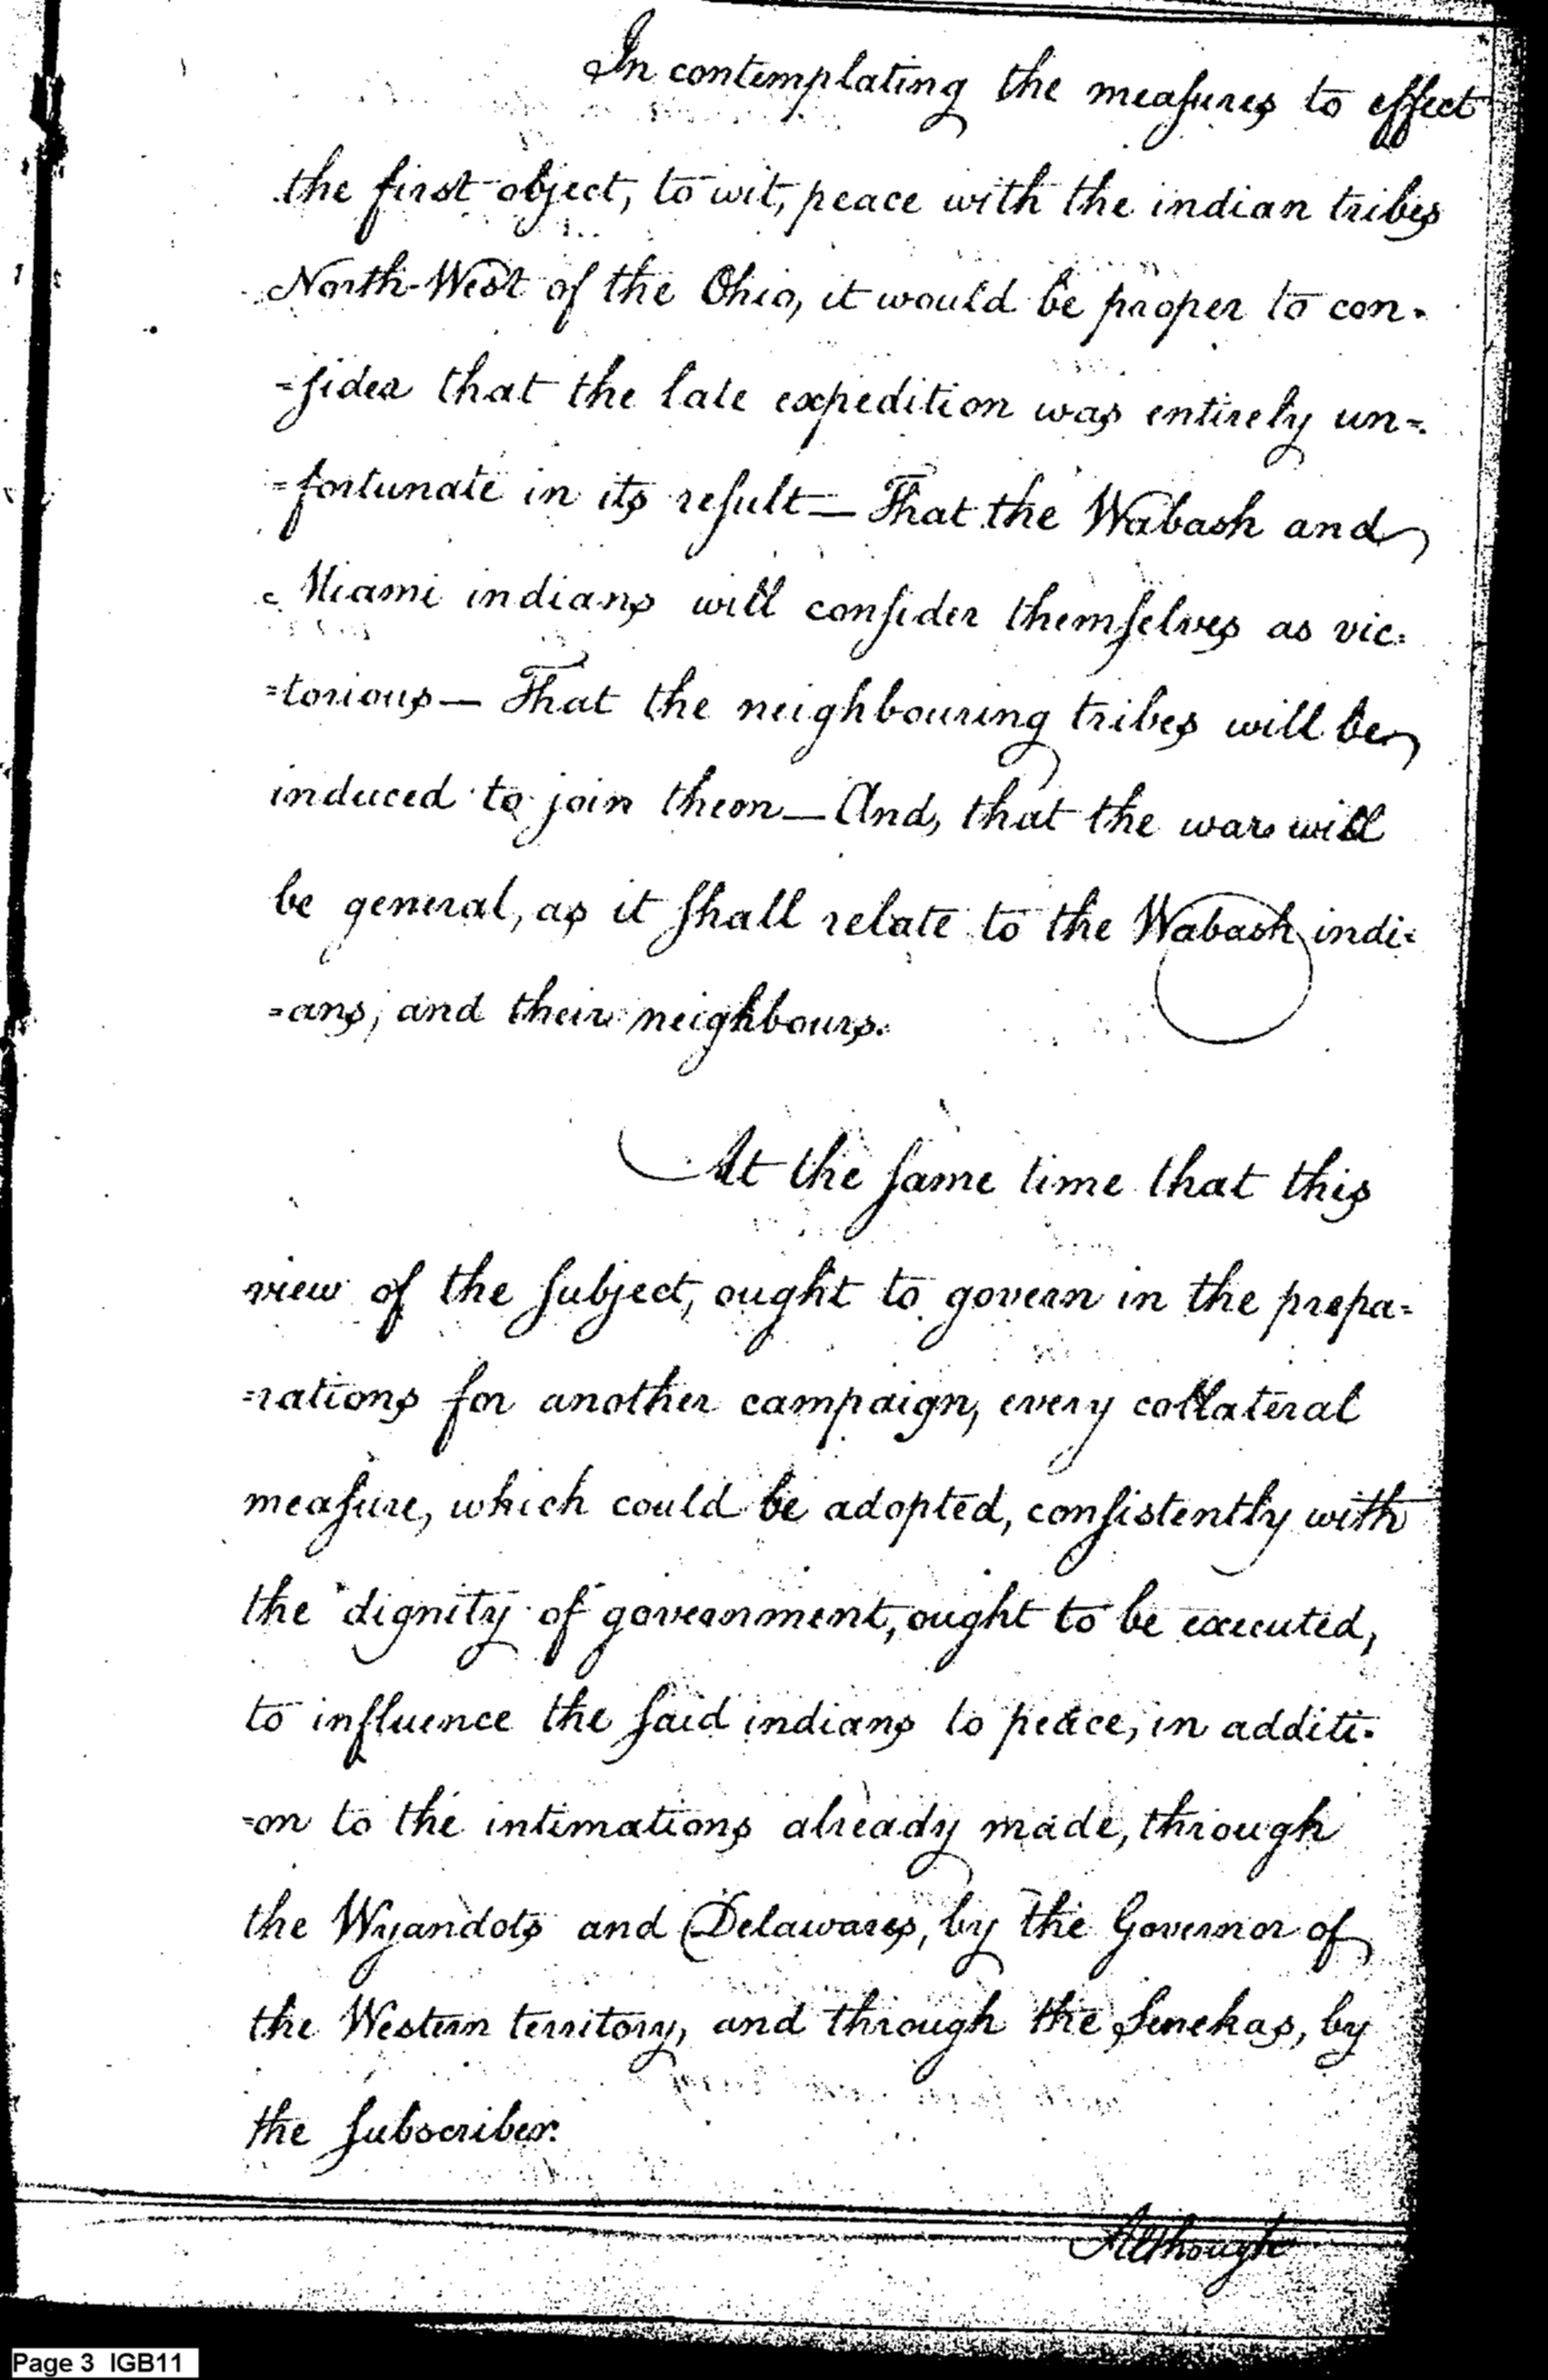 In contemplating the measures to effect
the first object, to wit, peace with the indian tribes
North-West of the Ohio, it would be proper to con-
=sider that the late expedition was entirely un=
=fortunate in its result — That the Wabash and
Miami indians will consider themselves as vic=
=torious — That the neighbouring tribes will be
induced to join them — And, that the war will
be general, as it shall relate to the Wabash indi=
=ans, and their neighbours.
At the same time that this
view of the subject, ought to govern in the prepa=
=rations for another campaign, every collateral
measure, which could be adopted, consistently with
the dignity of government, ought to be executed,
to influence the said indians to peace, in additi-
=on to the intimations already made, through
the Wyandots and Delawares, by the Governor of
the Western territory, and through the Senekas, by
the subscriber.
Although
Page 3 IGB11